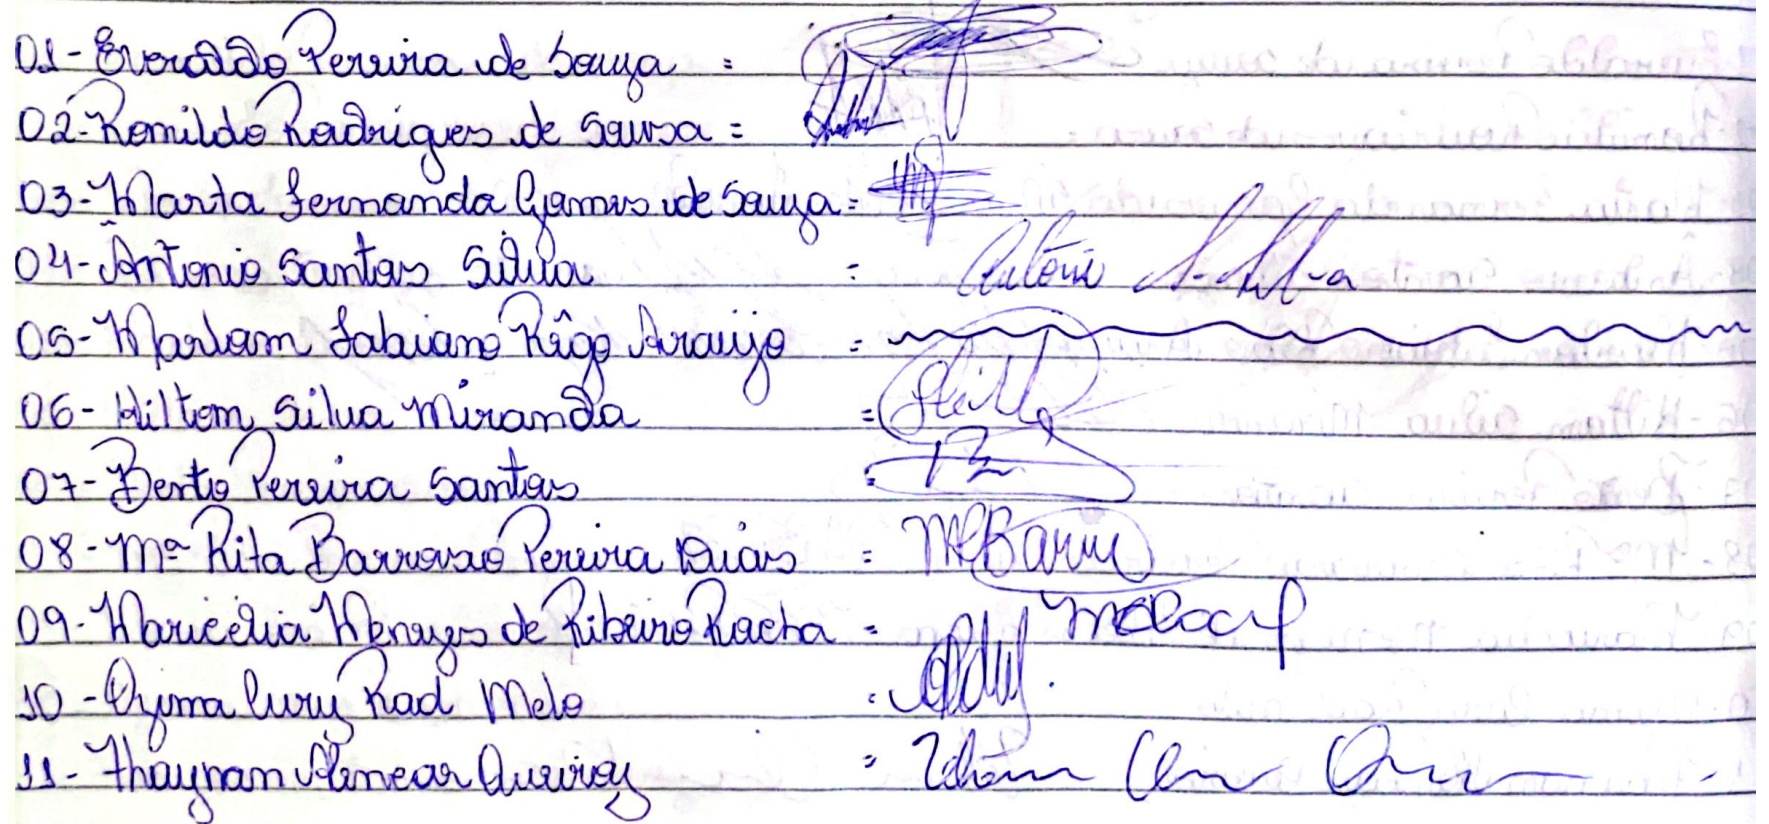 01- Everaldo Pereira de Souza :
02- Romildo Rodrigues de Sousa =
03- Marta Fernanda Gomes de Souza =
04- Antonio Santos Silva : Antônio S. Silva
05- Marlam Fabiano Rêgo Araujo =
06- Hiltom Silva Miranda =
07- Bento Pereira Santos :
08- Mª Rita Barroso Pereira Dias =
09- Maricélia Menezes de Ribeiro Rocha =
10- Ozima Cury Rad Melo :
11- Thaynan Alencar Queiroz =